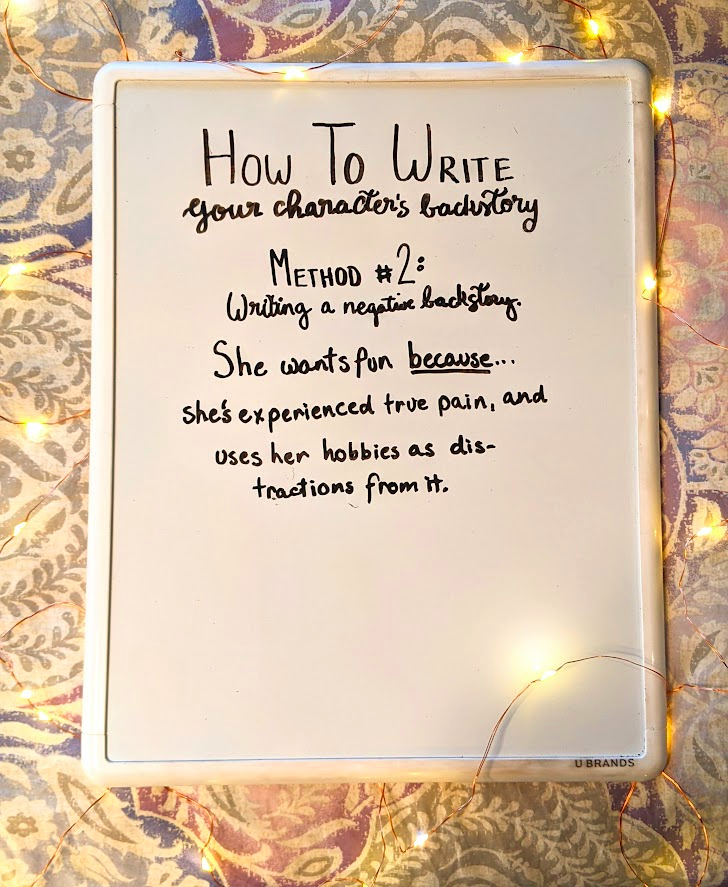 How To Write
your character's backstory
Method #2:
Writing a negative backstory.
She wants fun because...
she's experienced true pain, and
uses her hobbies as dis-
tractions from it.
U BRANDS